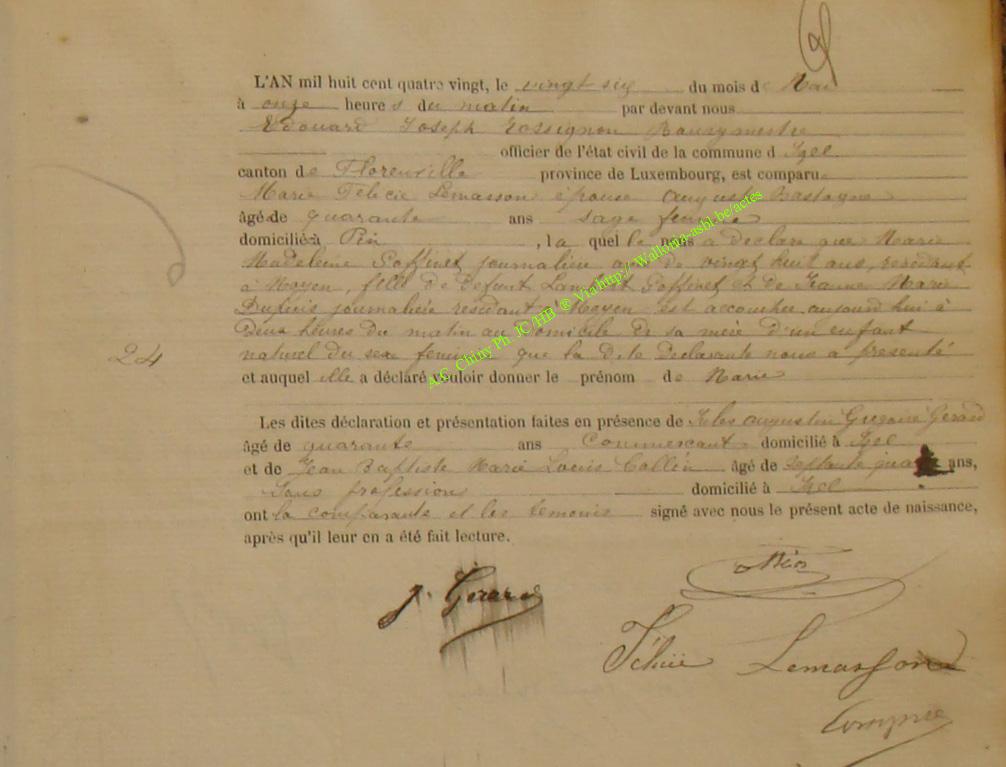 L'AN mil huit cent quatre vingt, le vingt six du mois de Mai
à onze heures du matin par devant nous
Edouard Joseph Rossignon Bourgmestre
officier de l'état civil de la commune d Izel
canton de Florenville province de Luxembourg, est comparue
Marie Félicie Lemasson épouse Auguste Bastogne
âgé de quarante ans sage femme
domicilié à Pin , la quelle nous a déclaré que Marie
Madeleine Goffinet journalière agée de vingt huit ans, résidant
à Moyen fille de défunt Lambert Goffinet et de Jeanne Marie
Dupuis journalière résidant à Moyen est accouchée aujourd hui à
deux heures du matin au domicile de sa mère d'un enfant
24
naturel du sexe féminin que la dite déclarante nous a présenté
et auquel elle a déclaré vouloir donner le prénom de Marie
Les dites déclaration et présentation faites en présence de Jules Augustin Grégoire Gerard
âgé de quarante ans Commerçant domicilié à Izel
et de Jean Baptiste Marie Louis Collin âgé de septante quatre ans,
Sans professions domicilié à Izel
ont la comparante et les témoins signé avec nous le présent acte de naissance,
après qu'il leur en a été fait lecture.
J. Gerard
Félicie Lemasson
A.C. Chiny Ph. JC/HB ® Via http:// Wallonia-asbl-be/actes